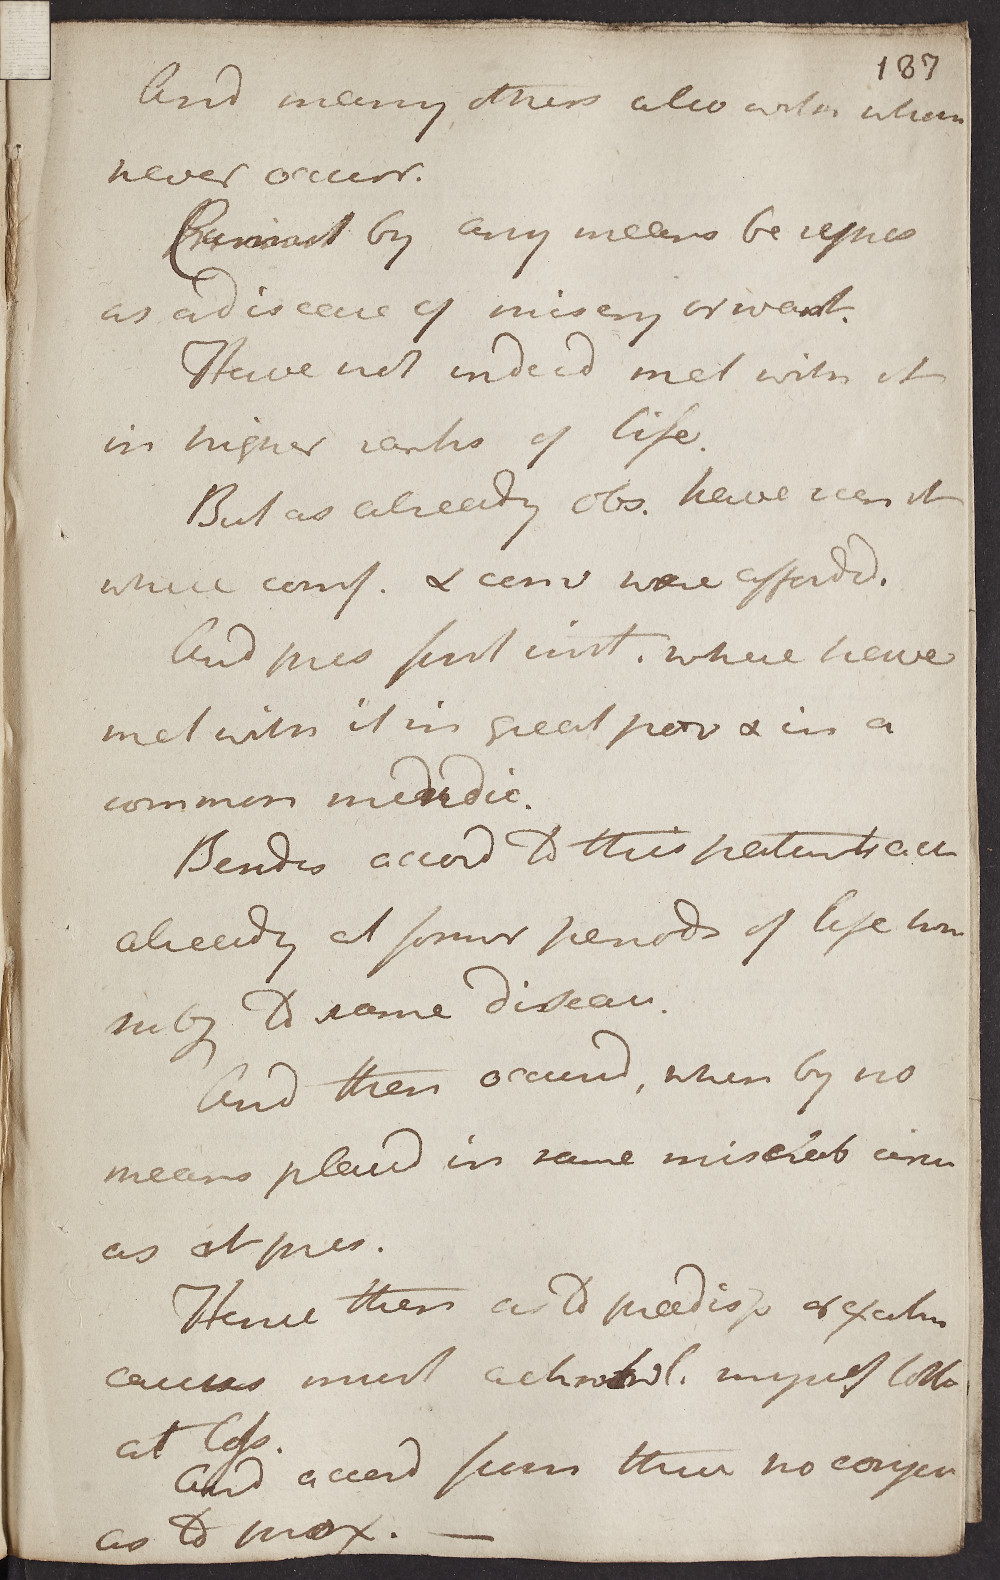 187
And many others also with whom
never occurr.
Cannot by any means be repres
as a disease of misery or want.
Have not indeed met with it
in higher ranks of life.
But as already obs. have seen it
where comf. & conv were afforded.
And pres first inst. where have
met with it in great pov & in a
common mendic.
Besides accord to this patients acc
already at former periods of life
subj to same disease.
And then occurred, when by no
means placed in same miserab circu
as at pres.
Hence then as to predisp or
causes must acknowl. myself
at loss.
And accord from these no conjec
as to prox. —